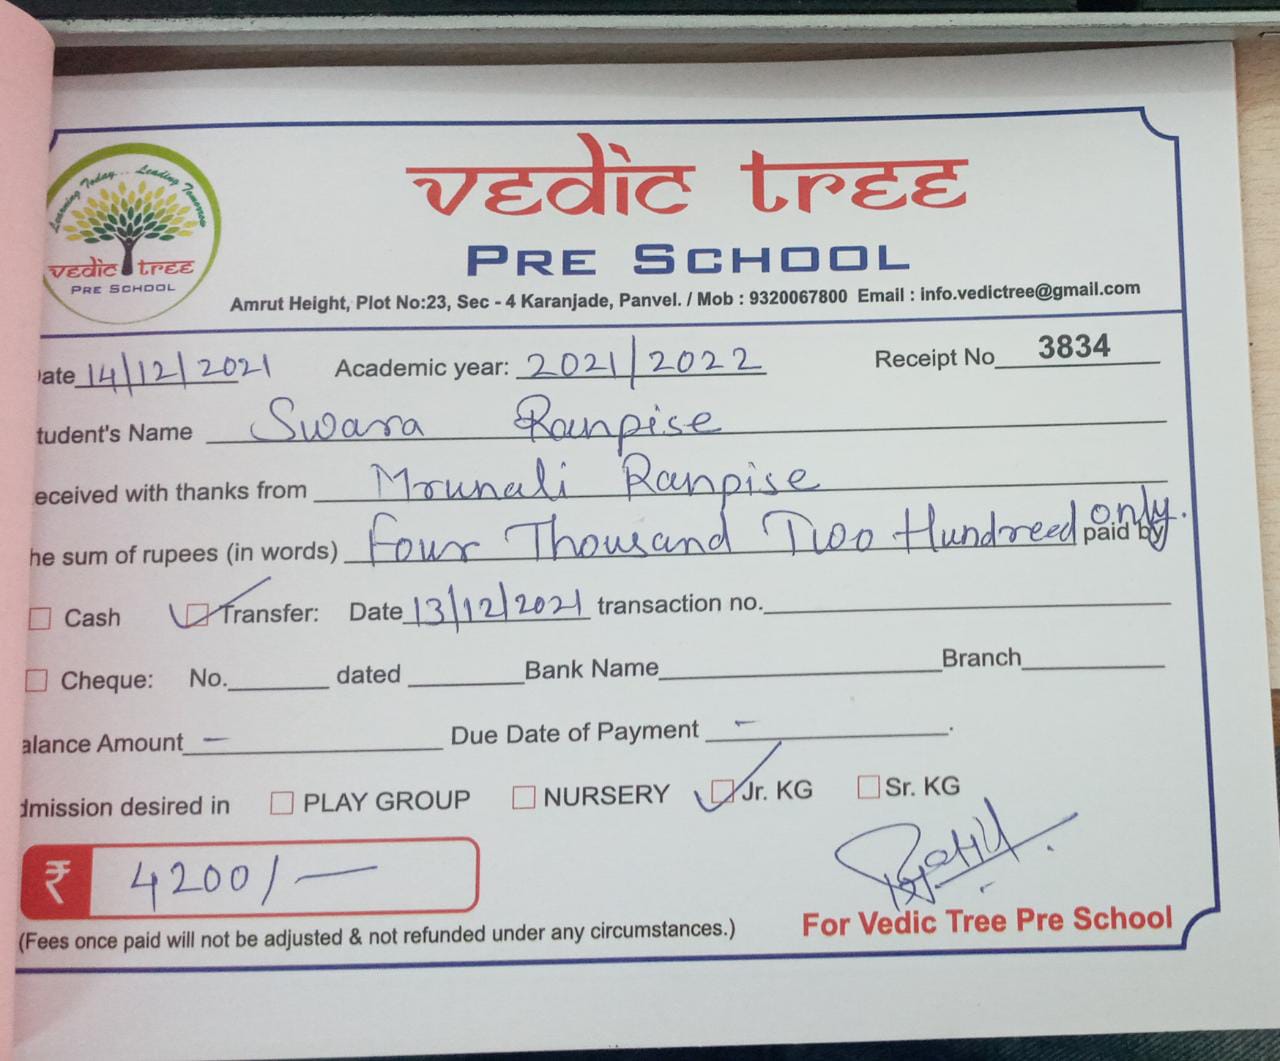 Learning Today... Leading Tomorrow
vedic tree
PRE SCHOOL
vedic tree
PRE SCHOOL
Amrut Height, Plot No:23, Sec - 4 Karanjade, Panvel. / Mob : 9320067800 Email : info.vedictree@gmail.com
ate 14/12/2021 Academic year: 2021/2022 Receipt No 3834
tudent's Name Swara Ranpise
eceived with thanks from Mrunali Ranpise
he sum of rupees (in words) Four Thousand Two Hundreed only. paid by
Cash Transfer: Date 13/12/2021 transaction no.
Cheque: No. dated Bank Name Branch
alance Amount – Due Date of Payment – .
dmission desired in PLAY GROUP NURSERY Jr. KG Sr. KG
₹ 4200/—
(Fees once paid will not be adjusted & not refunded under any circumstances.)
For Vedic Tree Pre School